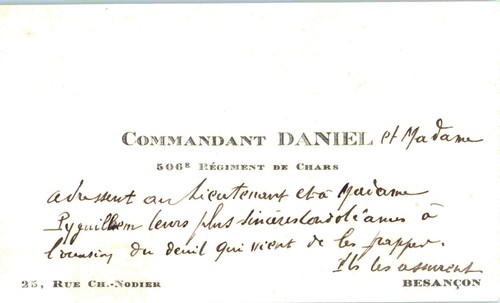 COMMANDANT DANIEL et Madame
506E RÉGIMENT DE CHARS
adressent au Lieutenant et à Madame
leurs plus sincères condoléances à
l'occasion du deuil qui vient de les frapper.
Ils les assurent
25, RUE CH.-NODIER BESANÇON